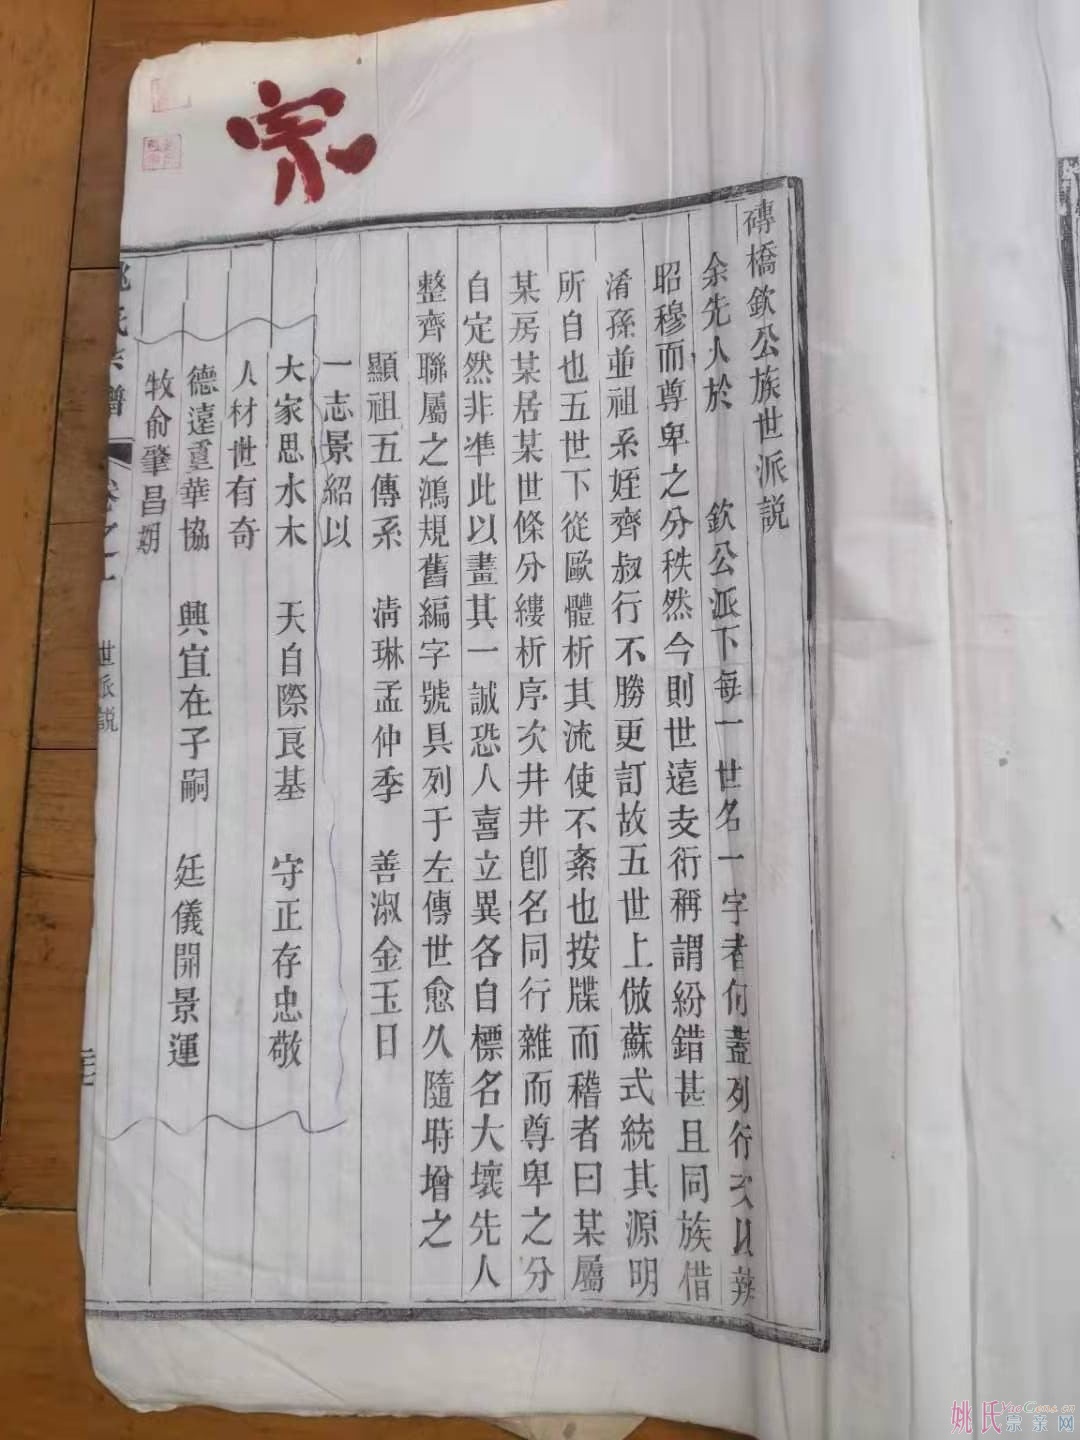 宗
磚橋欽公族世派説
余先人於 欽公派下每一世名一字者何蓋列行次以辨
昭穆而尊卑之分秩然今則世遠支衍稱謂紛錯甚且同族借
淆孫並祖系姪齊叔行不勝更訂故五世上倣蘇式統其源明
所自也五世下從歐體析其流使不紊也按牒而稽者曰某屬
某房某居某世條分縷析序次井井卽名同行雜而尊卑之分
自定然非凖此以畫其一誠恐人喜立異各自標名大壞先人
整齊聯屬之鴻規舊編字號具列于左傳世愈久隨時增之
顯祖五傳系 淸琳孟仲季 善淑金玉日
一志景紹以
大家思水木 天自際良基 守正存忠敬
人材世有奇
德遠重華協 興宜在子嗣 廷儀開景運
牧俞肇昌期
姚氏宗譜 卷之一 世派説
姚氏宗亲网
YaoGens.cn